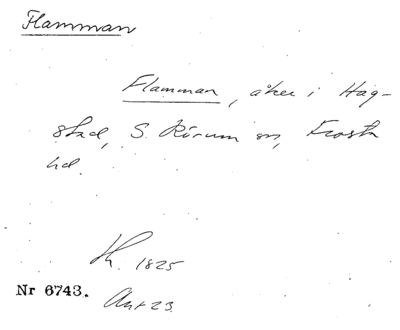 Flamman
Flamman, åker i Häg-
stad, S. Rörum sn, Frosta
hd.
K. 1825
Nr 6743.
Akt 23